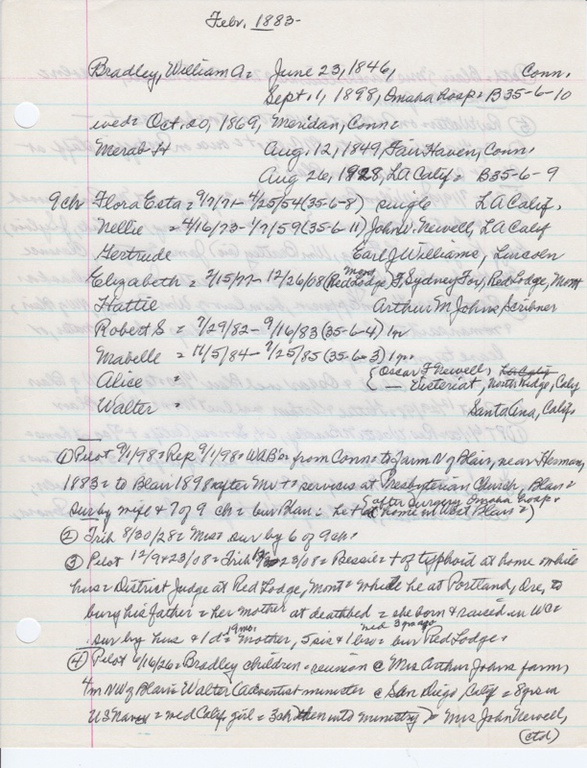 Febr. 1883-
Bradley, William A = June 23, 1846, Conn.
Sept. 1, 1898, Omaha Hosp = B35-6-10
wed = Oct. 20, 1869, Meridan, Conn =
Merab H Aug. 12, 1849, Fair Haven, Conn.
Aug 26, 1928, LA Calif = B35-6-9
9ch Flora Esta = 9/7/71 - 4/25/54 (35-6-8) single LA Calif.
Nellie = 4/16/73 - 1/7/59 (35-6-11) John W. Newell, LA Calif
Gertrude Earl J Williams, Lincoln
Elizabeth = 2/15/77 - 12/26/08 (Red Lodge Mont) F. Sydney Fox, Red Lodge, Mont
Hattie Arthur M Johns, Scribner
Robert S = 7/29/82 - 9/16/83 (35-6-4) 1 yr
Mabelle = 11/5/84 - 7/25/85 (35-6-3) 1 yr.
Alice = { Oscar F Newell, LA Calif
— Listeriat, North Ridge, Calif
Walter = Santa Ana, Calif.
① Pilot 9/1/98 = Rep 9/1/98 = WAB'er from Conn = to farm N of Blair, near Herman,
1883 = to Blair 1898 after Mr + = services at Presbyterian Church, Blair =
sur by wife & 7 of 9 ch = bur Blair = he + (after surgery Omaha Hosp = at home in West Blair =)
② Trib 8/30/28 = Mrs = sur by 6 of 9 ch =
③ Pilot 12/9 & 23/08 = Trib 12/23/08 = Bessie + of typhoid at home while
hus = District Judge at Red Lodge, Mont = while he at Portland, Ore, to
bury his father = her mother at deathbed = she born & raised in WC =
wed 3 yrs ago
sur by hus & 1 d = 19 mo. mother, 5 sis & 1 bro = bur Red Lodge =
④ Pilot 6/16/26 = Bradley children = reunion @ Mrs Arthur Johns farm,
4m NW of Blair = Walter (adventist minister @ San Diego, Calif = 8 yrs in
US Navy = wed Calif girl = 3 ch then into ministry) = Mrs John Newell,
(ctd)